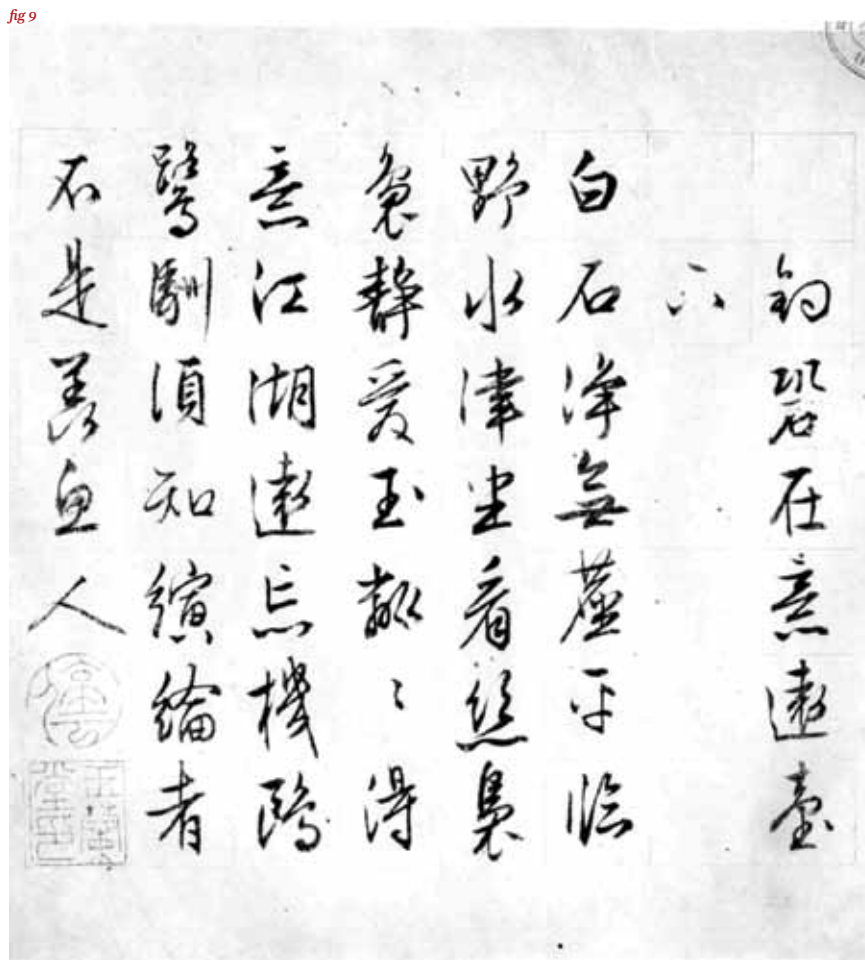 fig 9
釣䂬在意遠臺
下
白石淨無塵平臨
野水津坐看絲裊
裊靜愛玉粼〻得
意江湖遠忘機鷗
鷺馴須知縯綸者
不是羨魚人
停雲
玉蘭堂印